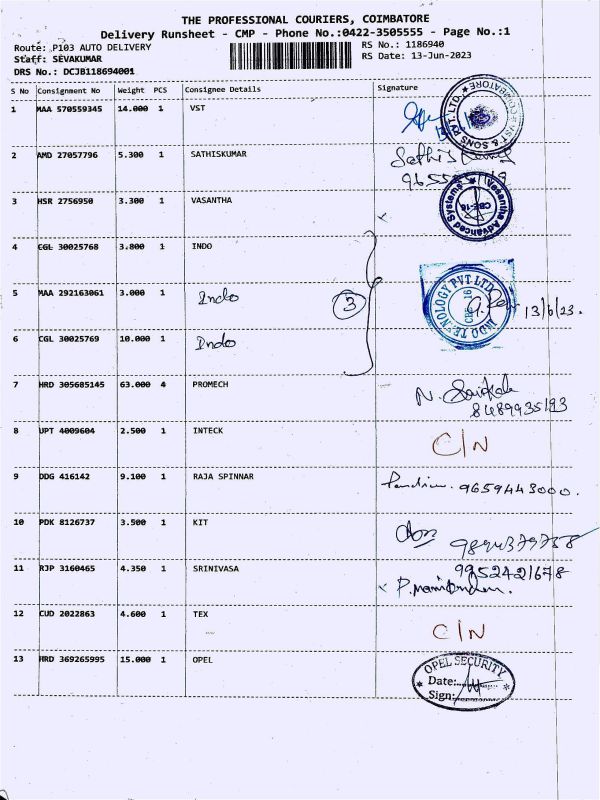 THE PROFESSIONAL COURIERS, COIMBATORE
Delivery Runsheet - CMP - Phone No.:0422-3505555 - Page No.:1
Route: P103 AUTO DELIVERY
RS No.: 1186940
Staff: SEVAKUMAR
RS Date: 13-Jun-2023
DRS No.: DCJB118694001
S No Consignment No Weight PCS Consignee Details Signature
1 MAA 570559345 14.000 1 VST
VST & SONS PVT. LTD. ★ COIMBATORE ★
2 AMD 27057796 5.300 1 SATHISKUMAR
3 HSR 2756950 3.300 1 VASANTHA
Vasantha Advanced Systems ★ CBE-16
4 CGL 30025768 3.800 1 INDO
5 MAA 292163061 3.000 1 Indo 3
INDO TECHNOLOGY PVT. LTD. CBE 16
13/6/23.
6 CGL 30025769 10.000 1 Indo
7 HRD 305685145 63.000 4 PROMECH
8489935193
8 UPT 4009604 2.500 1 INTECK C/N
9 DDG 416142 9.100 1 RAJA SPINNAR 9659443000.
10 PDK 8126737 3.500 1 KIT
9894379758
11 RJP 3160465 4.350 1 SRINIVASA 9952421678
12 CUD 2022863 4.600 1 TEX C/N
13 HRD 369265995 15.000 1 OPEL
OPEL SECURITY
Date:
Sign: